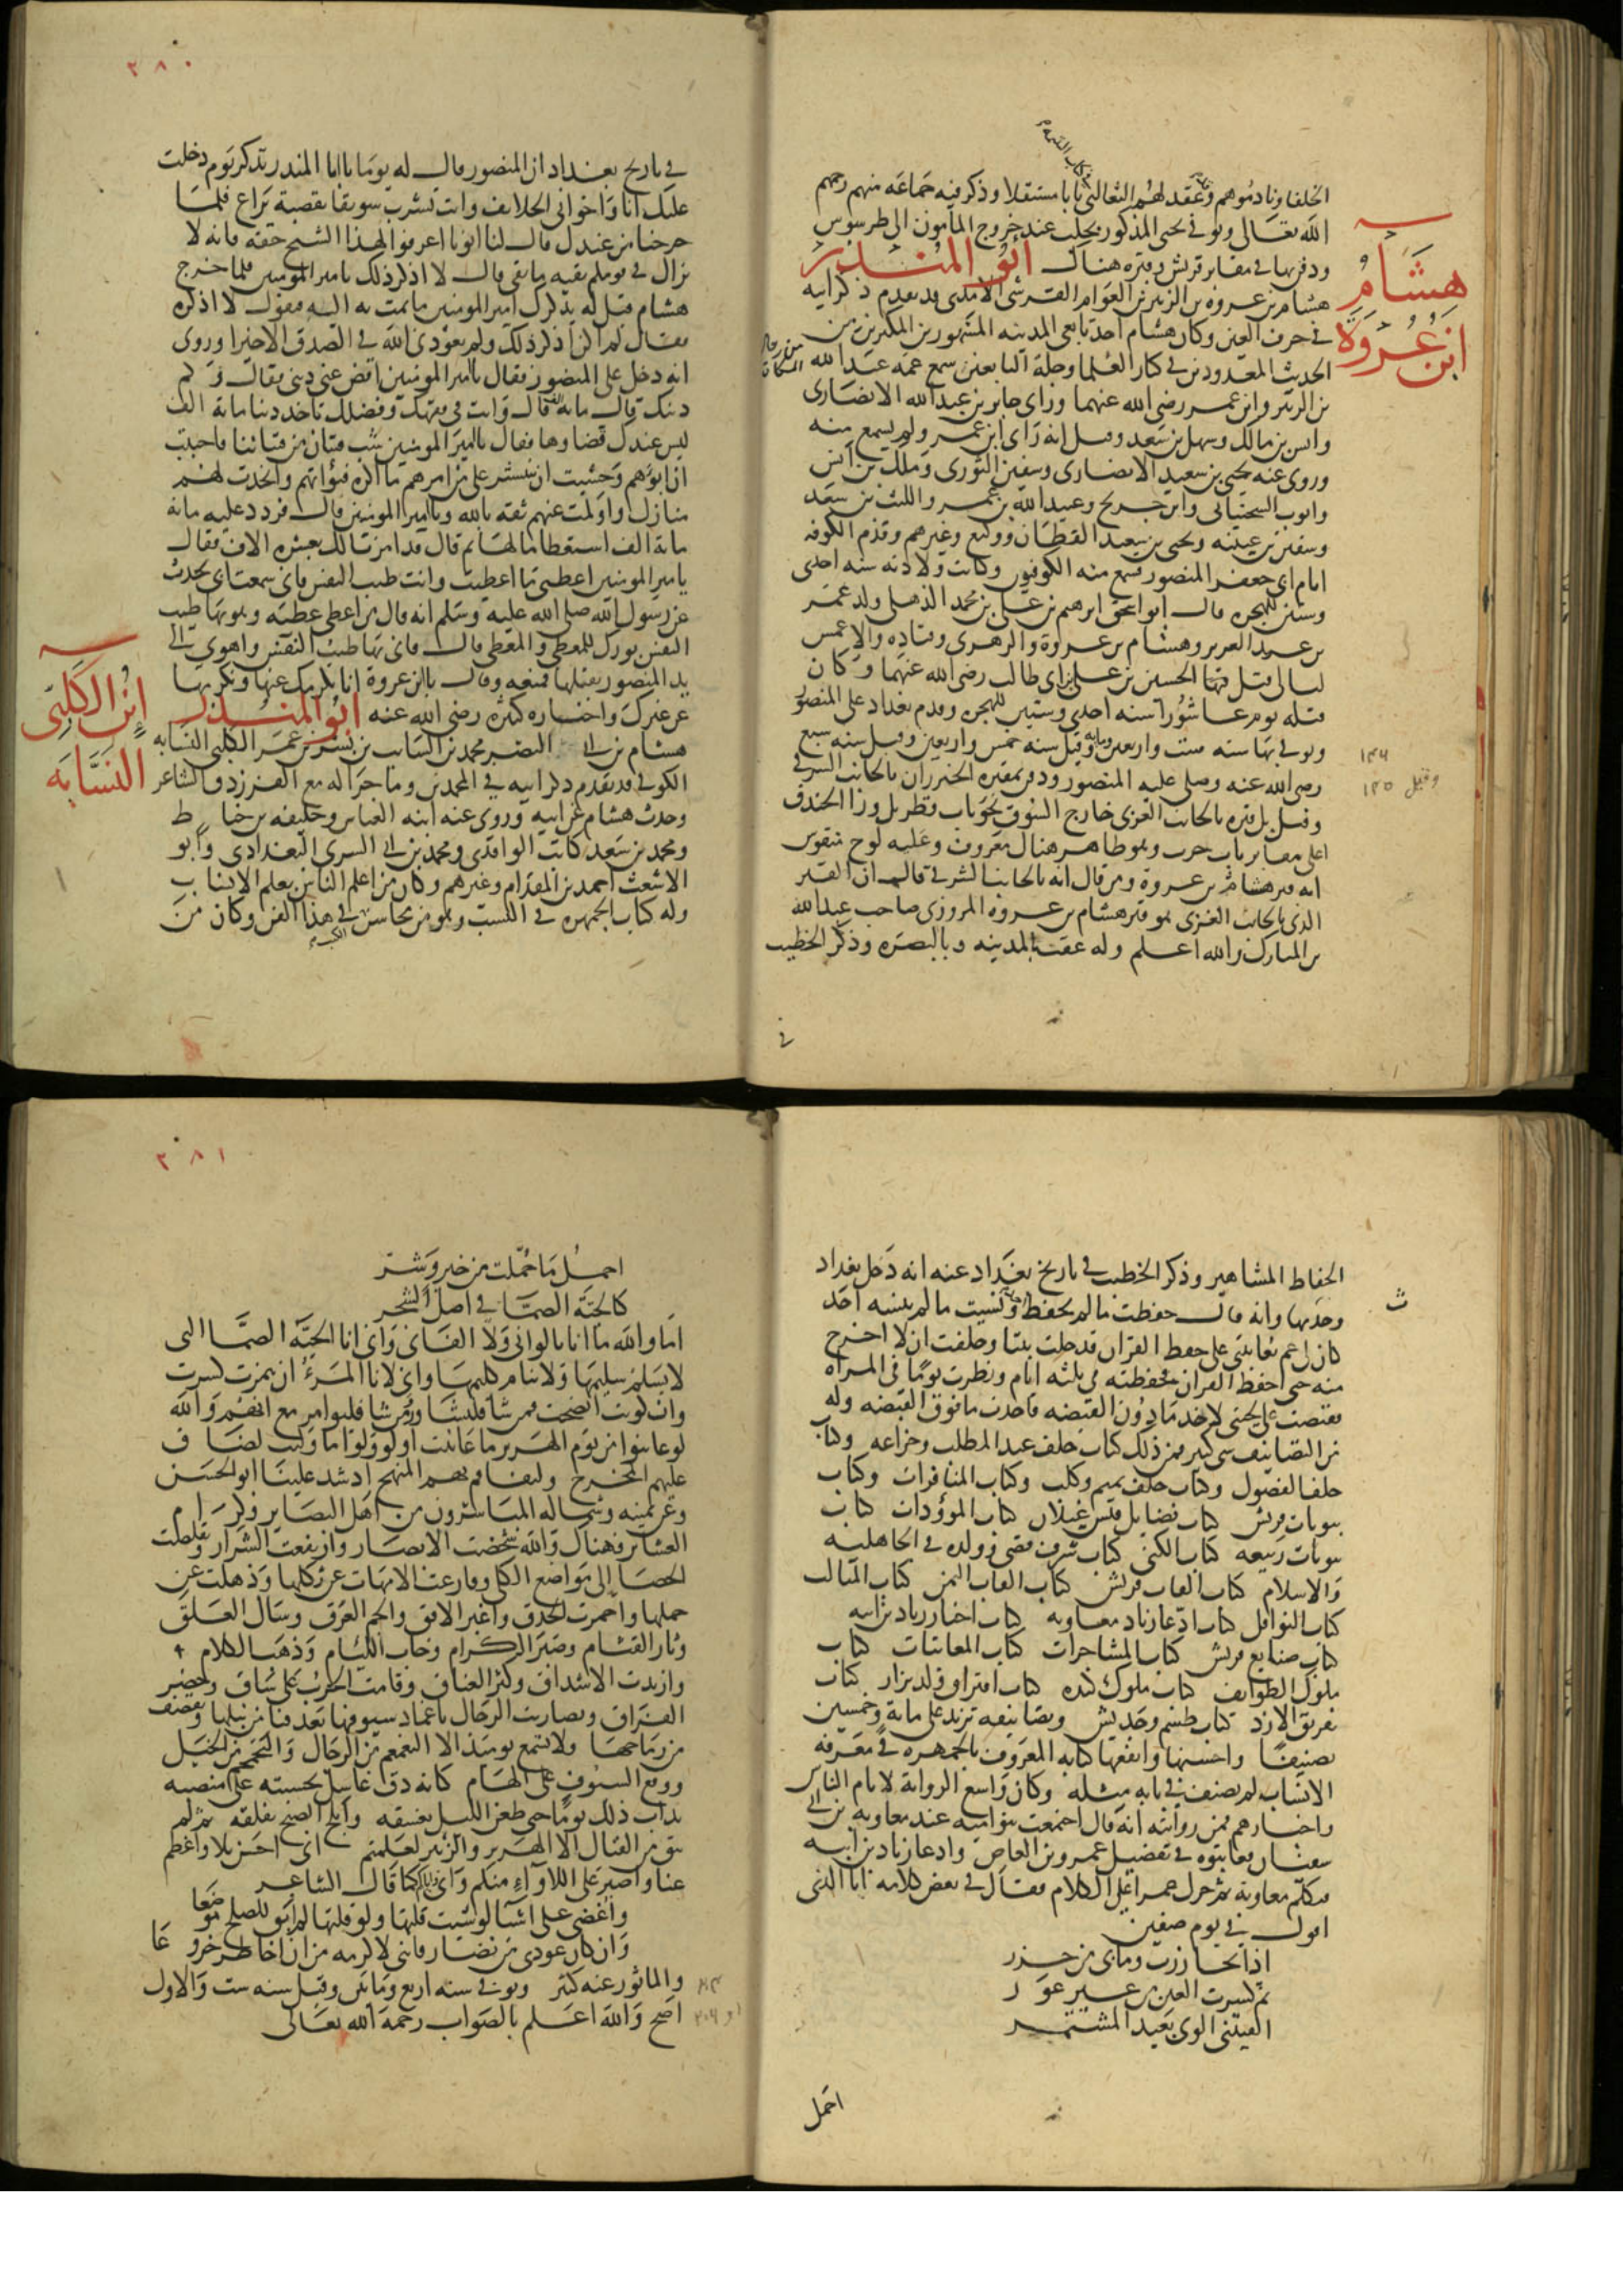 في كتاب اليتيمة
الخلفا ونادموهم وعقد لهم الثعالبي بابا مستقلا وذكر فيه جماعه منهم رحمهم
الله تعالى وتوفي يحيى المذكور بحلب عند خروج المأمون الى طرسوس
ودفن بها في مقابر قريش وقبره هناك ابو المنذر
هشام
ابن عروة
هشام بن عروه بن الزبير بن العوام القرشي الاسدي قد تقدم ذكر ابيه
في حرف العين وكان هشام احد تابعي المدينه المشهورين المكثرين من
الحديث المعدودين في كبار العلما وجلة التابعين سمع عمه عبد الله
بن الزبير وابن عمر رضي الله عنهما وراى جابر بن عبد الله الانصارى
وانس بن مالك وسهل بن سعد وقيل انه راى ابن عمر ولم يسمع منه
وروى عنه يحيى بن سعيد الانصارى وسفين الثورى وملك بن انس
وايوب السختياني وابن جريج وعبيد الله بن عمر والليث بن سعد
وسفين بن عيينه ويحيى بن سعيد القطان ووكيع وغيرهم وقدم الكوفه
ايام ابي جعفر المنصور فسمع منه الكوفيون وكانت ولادته سنه احدى
وستين للهجره قال ابو اسحق ابرهيم بن علي بن محمد الذهلي ولد عمر
بن عبد العزيز وهشام بن عروة والزهرى وقتاده والاعمش
ليالي قتل فيها الحسين بن علي بن ابي طالب رضي الله عنهما وكان
قتله يوم عاشورا سنه احدى وستين للهجره وقدم بغداد على المنصور
وتوفي بها سنه ست واربعين ومايه وقيل سنه خمس واربعين وقيل سنه سبع
١٤٦
وقيل ١٤٥
رضي الله عنه وصلى عليه المنصور ودفن بمقبره الخيزران بالجانب الشرقي
وقيل بل قبره بالجانب الغربي خارج السوق نحو باب قطربل ورا الخندق
اعلى مقابر باب حرب وهو ظاهر هناك معروف وعليه لوح منقوش
انه قبر هشام بن عروة ومن قال انه بالجانب الشرقي قال ان القبر
الذي بالجانب الغربي هو قبر هشام بن عروه المروزى صاحب عبد الله
بن المبارك والله اعلم وله عقب بالمدينه وبالبصره وذكر الخطيب
في
٢٨٠
في تاريخ بغداد ان المنصور قال له يوما يا ابا المنذر تذكر يوم دخلت
عليك انا واخواني الخلايف وانت تشرب سويقا بقصبة يراع فلما
خرجنا من عندك قال لنا ابونا اعرفوا لهذا الشيخ حقه فانه لا
يزال في قومكم بقيه ما بقي قال لا اذكر ذلك يا امير المومنين فلما خرج
هشام قيل له يذكرك امير المومنين ما تمت به اليه فتقول لا اذكره
فقال لم اكن اذكر ذلك ولم يعودني الله في الصدق الا خيرا وروى
انه دخل على المنصور فقال يا امير المومنين اقض عني ديني فقال وكم
دينك قال مايه الف قال وانت في فقهك وفضلك تاخذ دينا ماية الف
ليس عندك قضاوها فقال يا امير المومنين شب فتيان من فتياننا فاحببت
ان ابوئهم وخشيت ان ينتشر علي من امرهم ما اكره فبوأتهم واتخذت لهم
منازل واولمت عنهم ثقه بالله وبامير المومنين قال فردد عليه ماية
ماية الف استعظاما لها ثم قال قد امرنا لك بعشره الاف فقال
يا امير المومنين اعطني ما اعطيت وانت طيب النفس فاني سمعت ابي يحدث
عن رسول الله صلى الله عليه وسلم انه قال من اعطى عطيه وهو بها طيب
النفس بورك للمعطي والمعطى قال فاني بها طيب النفس واهوى الى
يد المنصور يقبلها فمنعه وقال يا ابن عروة انا نكرمك عنها ونكرمها
عن غيرك واخباره كثيره رضي الله عنه ابو المنذر
ابن الكلبي
النسابه
هشام بن ابي النضر محمد بن السايب بن بشر بن عمر الكلبي النسابه
الكوفي قد تقدم ذكر ابيه في المحمدين وما جرا له مع الفرزدق الشاعر
وحدث هشام عن ابيه وروى عنه ابنه العباس وخليفه بن خياط
ومحمد بن سعد كاتب الواقدى ومحمد بن ابي السرى البغدادى وابو
الاشعث احمد بن المقدام وغيرهم وكان من اعلم الناس بعلم الانساب
وله كتاب الجمهره في النسب وهو من محاسن الكتب في هذا الفن وكان من
الحفاظ المشاهير وذكر الخطيب في تاريخ بغداد عنه انه دخل بغداد
وحدث بها وانه قال حفظت ما لم يحفظ احد ونسيت ما لم ينسه احد
كان لي عم يعاتبني على حفظ القران فدخلت بيتا وحلفت ان لا اخرج
منه حتى احفظ القران فحفظته في ثلثه ايام ونظرت يوما في المراه
فقبضت على لحيتي لاخذ ما دون القبضه فاخذت ما فوق القبضه وله
من التصانيف شي كثير فمن ذلك كتاب حلف عبد المطلب وخزاعه وكتاب
حلف الفضول وكتاب حلف تميم وكلب وكتاب المنافرات وكتاب
بيوتات قريش كتاب فضايل قيس غيلان كتاب الموؤدات كتاب
بيوتات ربيعه كتاب الكنى كتاب شرف قصي وولده في الجاهليه
والاسلام كتاب القاب قريش كتاب القاب اليمن كتاب المثالب
كتاب النوافل كتاب ادعا زياد معاويه كتاب اخبار زياد بن ابيه
كتاب صنايع قريش كتاب المشاجرات كتاب المعاتبات كتاب
ملوك الطوايف كتاب ملوك كنده كتاب افتراق ولد نزار كتاب
تفريق الازد كتاب طسم وجديس وتصانيفه تزيد على ماية وخمسين
تصنيفا واحسنها وانفعها كتابه المعروف بالجمهره في معرفه
الانساب لم يصنف في بابه مثله وكان واسع الرواية لايام الناس
واخبارهم فمن روايته انه قال اجتمعت بنو اميه عند معاويه بن ابي
سفيان فعاتبوه في تفضيل عمرو بن العاص وادعا زياد بن ابيه
فتكلم معاويه ثم حرك عمرا على الكلام فقال في بعض كلامه انا الذي
اقول في يوم صفين
اذا تخازرت وما بي من خزر
ثم كسرت العين من غير عور
الفيتني الوى بعيد المستمر
احمل
٢٨١
احمل ما حملت من خير وشر
كالحية الصما في اصل الشجر
اما والله ما انا بالواني ولا الفاني واني انا الحية الصما التي
لا يسلم سليمها ولا ينام كليمها واني لانا المرء ان همزت كسرت
وان كويت انضجت فمن شا فليشاور ومن شا فليوامر مع انهم والله
لو عاينوا من يوم الهرير ما عاينت او لو ولوا ما وليت لضاق
عليهم المخرج ولتفاقم بهم المنهج اذ شد علينا ابو الحسن
وعن يمينه وشماله المباشرون من اهل البصاير وكرام
العشاير فهناك والله شخصت الابصار وارتفعت الشرار وتقلصت
الخصا الى مواضع الكلى وقارعت الامهات عن ثكلها وذهلت عن
حملها واحمرت الحدق واغبر الافق والجم العرق وسال العلق
وثار القتام وصبر الكرام وخاب اللئام وذهب الكلام
وازبدت الاشداق وكثر العناق وقامت الحرب على ساق وحضر
الفراق وتضاربت الرجال باغماد سيوفها بعد فنا من نبلها وتقصف
من رماحها ولا تسمع يومئذ الا التغمغم من الرجال والتحمحم من الخيل
ووقع السيوف على الهام كانه دق غاسل بخشبته على منصبه
نداب ذلك يوما حتى طعن الليل بغسقه واقبل الصبح بفلقه ثم لم
يبق من القتال الا الهرير والزئير لعلمتم اني احسن بلا واعظم
عنا واصبر على اللاواء منكم واني واياكم كما قال الشاعر
واغضي على اشيا لو شيت قلتها ولو قلتها لم ابق للصلح موضعا
وان كان عودى من نضار فانني لاكرمه من ان اخاطر خروعا
والماثور عنه كثير وتوفي سنه اربع ومايتين وقيل سنه ست والاول
٢٠٤
او ٢٠٦
اصح والله اعلم بالصواب رحمه الله تعالى